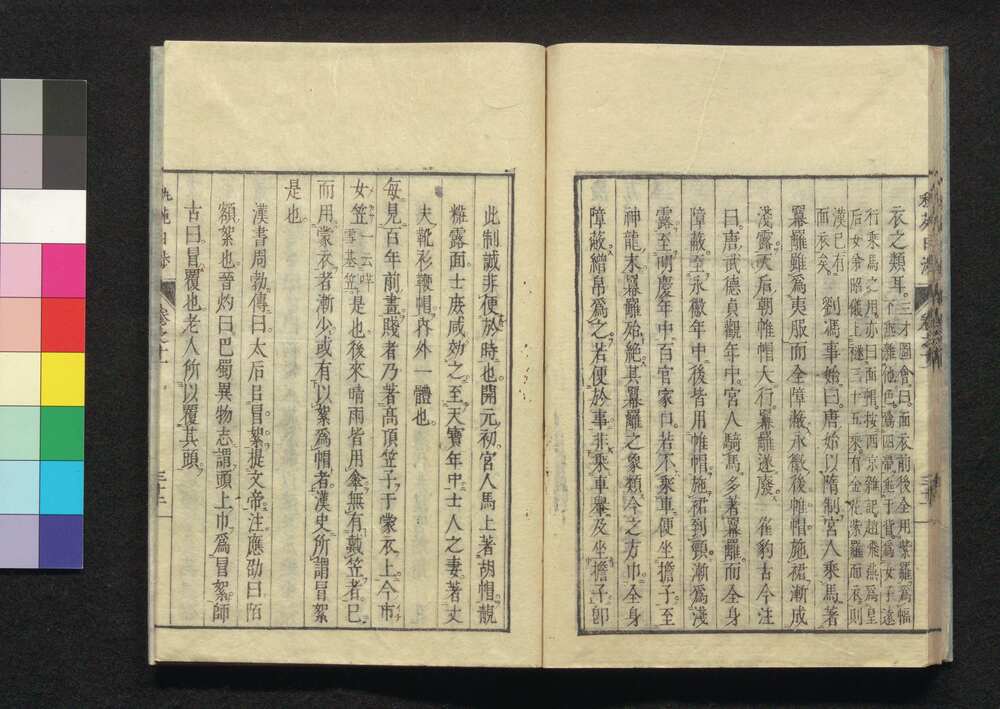 衣之類耳。三才圖會曰。面衣前後全用紫羅爲幅
下垂雜他色爲四帶垂于背爲女子遠
行乘馬之用。亦曰面帽。按西京雜記趙飛燕爲皇
后女弟昭儀上襚三十五乘。有金花紫羅面衣則
漢已有
面衣矣。 劉馮事始曰。唐始以隋制宮人乘馬著
羃䍦雖爲夷服而全障蔽。永徽後帷帽施裙漸成
淺露。天后朝帷帽大行。羃䍦遂廢。 崔豹古今注
曰。唐武德貞觀年中。宮人騎馬。多著羃䍦。而全身
障蔽。至永徽年中後皆用帷帽。施裙到頸。漸爲淺
露。至明慶年中。百官家口。若不乘車便坐擔子。至
神龍末。羃䍦殆絶。其羃䍦之象類今之方巾。全身
障蔽。繒帛爲之。若便於事。非乘車轝及坐擔子。卽
此制誠非便於時也。開元初。宮人馬上著胡帽。靚
糚露面。士庶咸効之。至天寶年中。士人之妻著丈
夫靴衫鞭帽。內外一體也。
每見百年前畫。賤者乃著高頂笠子于蒙衣上。今市
女笠一云咩
雪基笠是也。後來晴雨皆用傘。無有戴笠者。已
而用蒙衣者漸少。或有以絮爲帽者。漢史所謂冒絮
是也。
漢書周勃傳曰。太后以冒絮提文帝。注。應劭曰。陌
額絮也。晉灼曰。巴蜀異物志。謂頭上巾爲冒絮。師
古曰。冒覆也。老人所以覆其頭。